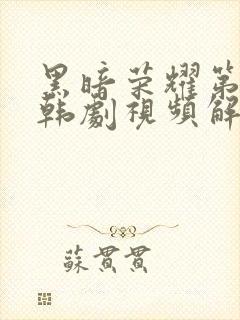 黑暗荣耀第
韩劇視頻解
蘇貫貫